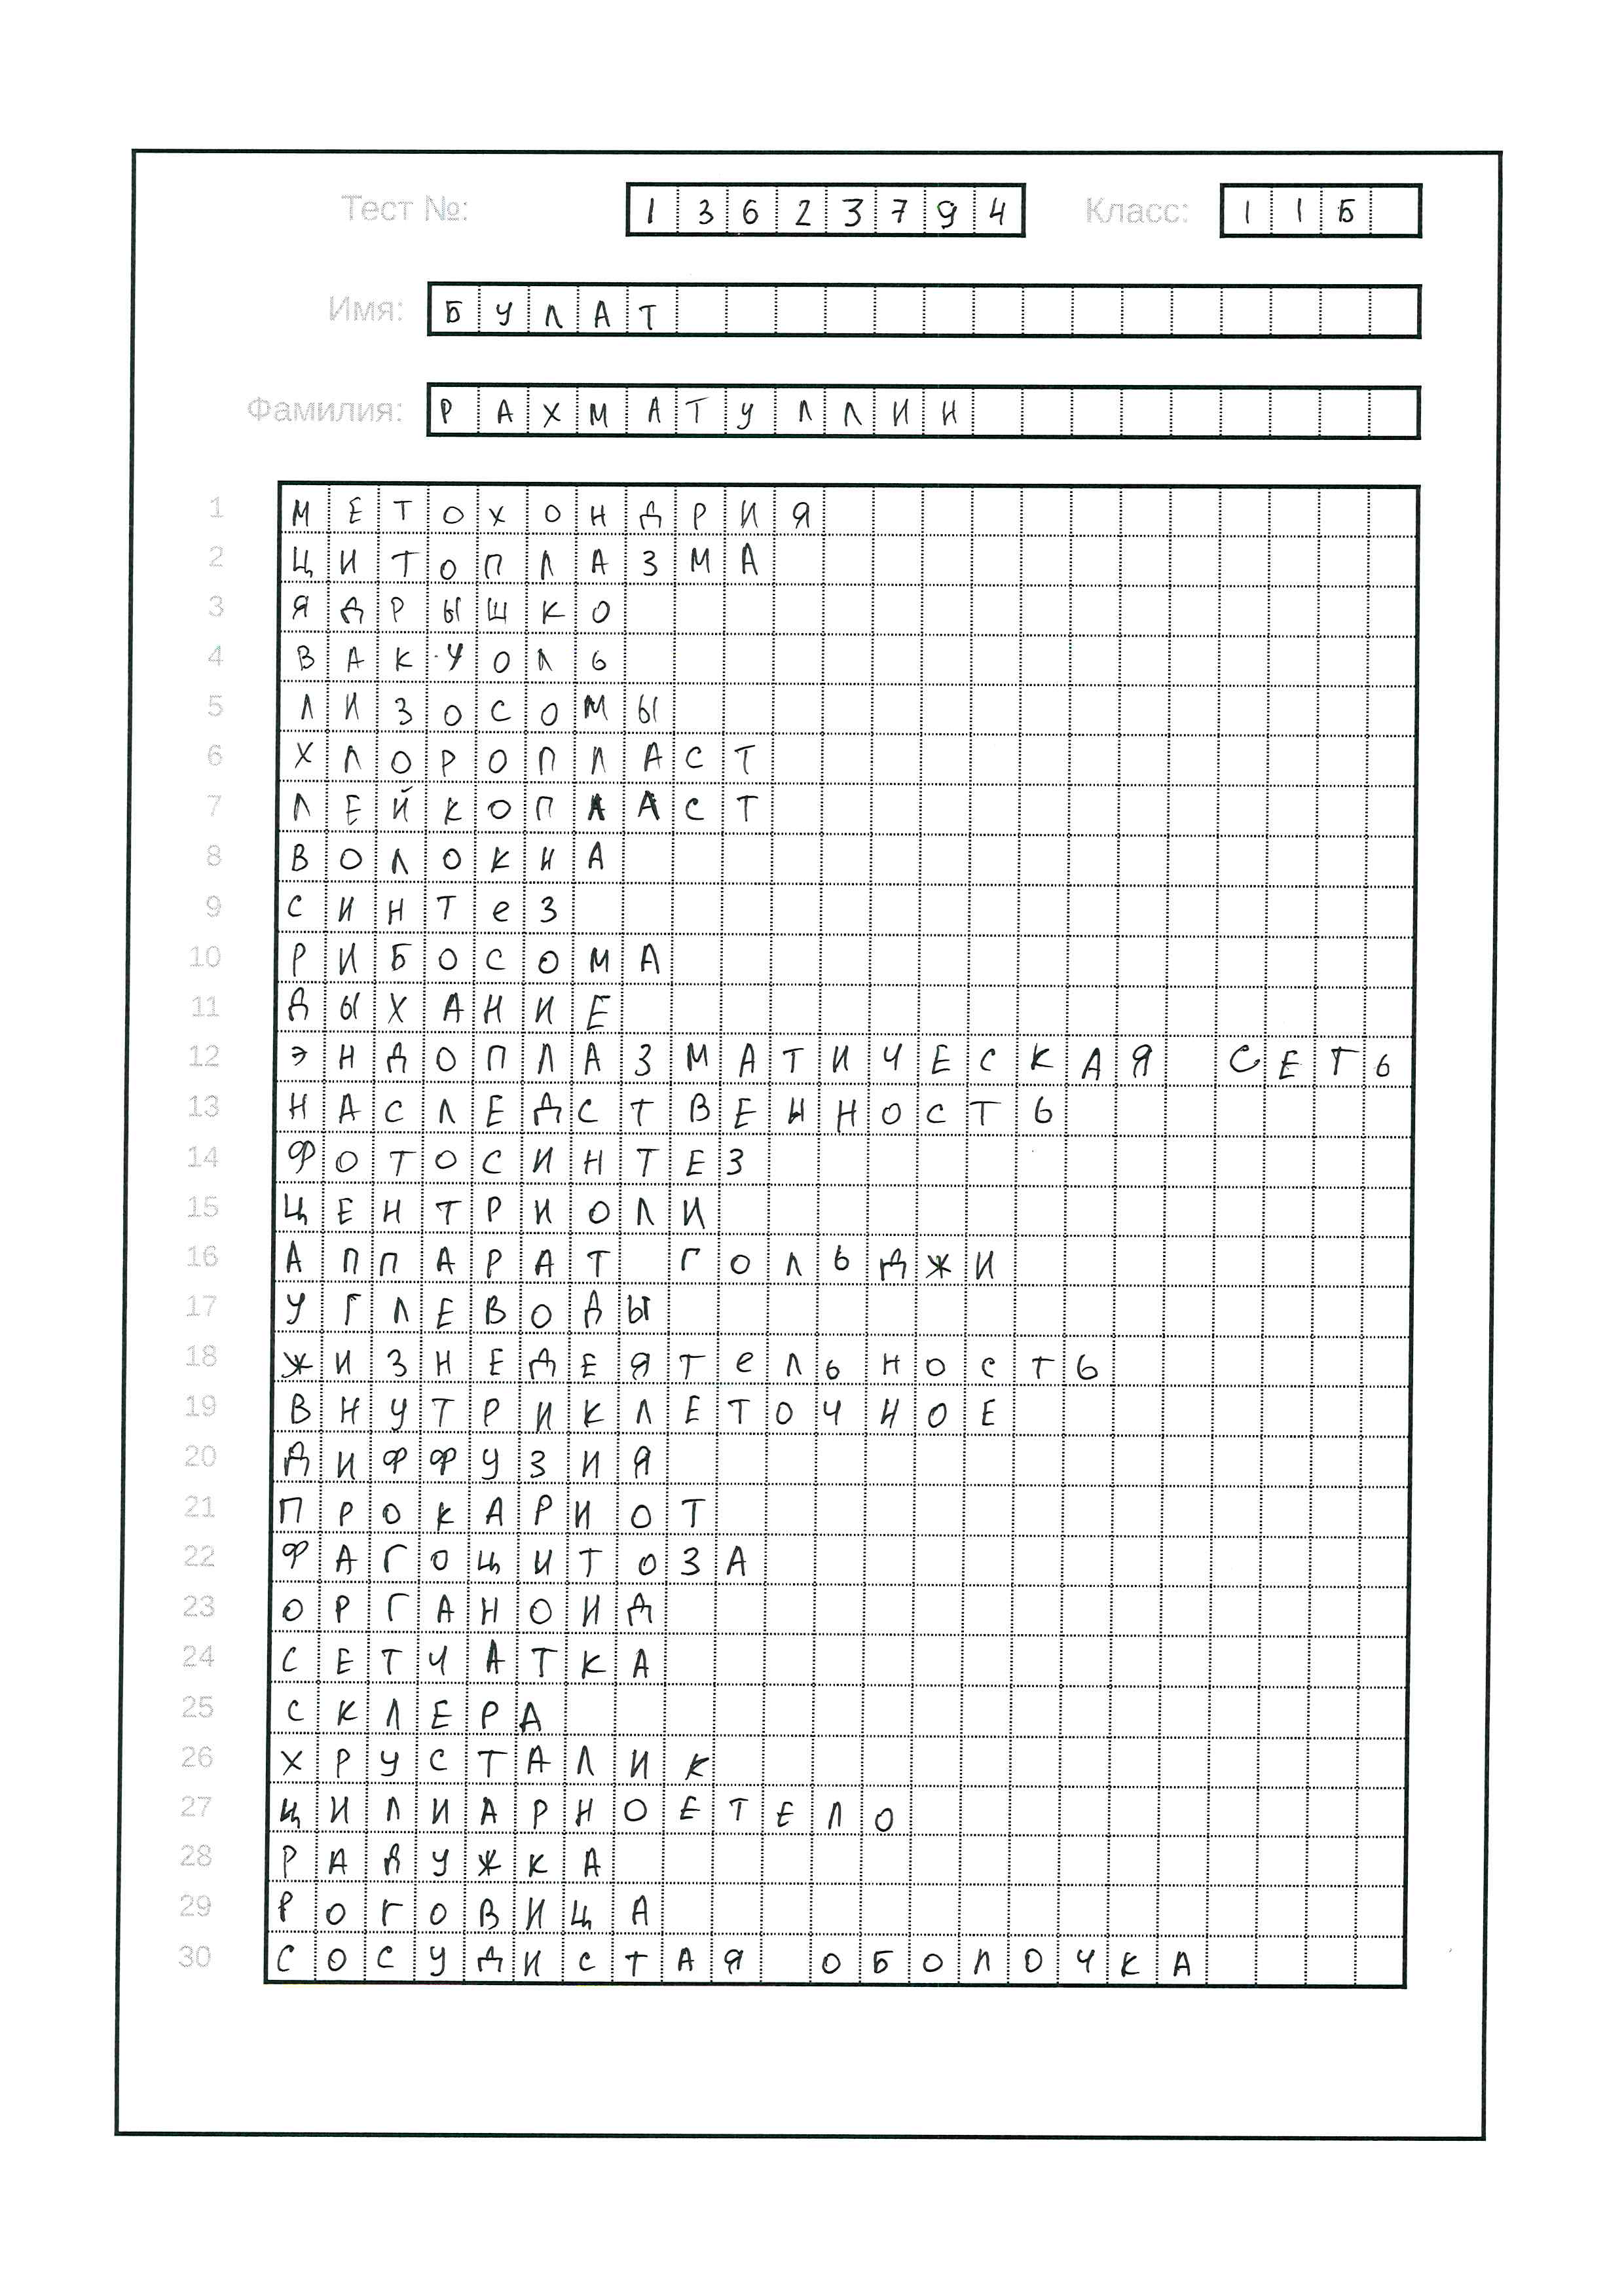 Тест №: 13623794 Класс: 11Б
Имя: БУЛАТ
Фамилия: РАХМАТУЛЛИН
1 МЕТОХОНДРИЯ
2 ЦИТОПЛАЗМА
3 ЯДРЫШКО
4 ВАКУОЛЬ
5 ЛИЗОСОМЫ
6 ХЛОРОПЛАСТ
7 ЛЕЙКОПААСТ
8 ВОЛОКНА
9 СИНТеЗ
10 РИБОСОМА
11 ДЫХАНИЕ
12 ЭНДОПЛАЗМАТИЧЕСКАЯ СЕТЬ
13 НАСЛЕДСТВЕННОСТЬ
14 ФОТОСИНТЕЗ
15 ЦЕНТРИОЛИ
16 АППАРАТ ГОЛЬДЖИ
17 УГЛЕВОДЫ
18 ЖИЗНЕДЕЯТеЛЬНОСТЬ
19 ВНУТРИКЛЕТОЧНОЕ
20 ДИФФУЗИЯ
21 ПРОКАРИОТ
22 ФАГОЦИТОЗА
23 ОРГАНОИД
24 СЕТЧАТКА
25 СКЛЕРА
26 ХРУСТАЛИК
27 ЦИЛИАРНОЕТЕЛО
28 РАДУЖКА
29 РОГОВИЦА
30 СОСУДИСТАЯ ОБОЛОЧКА